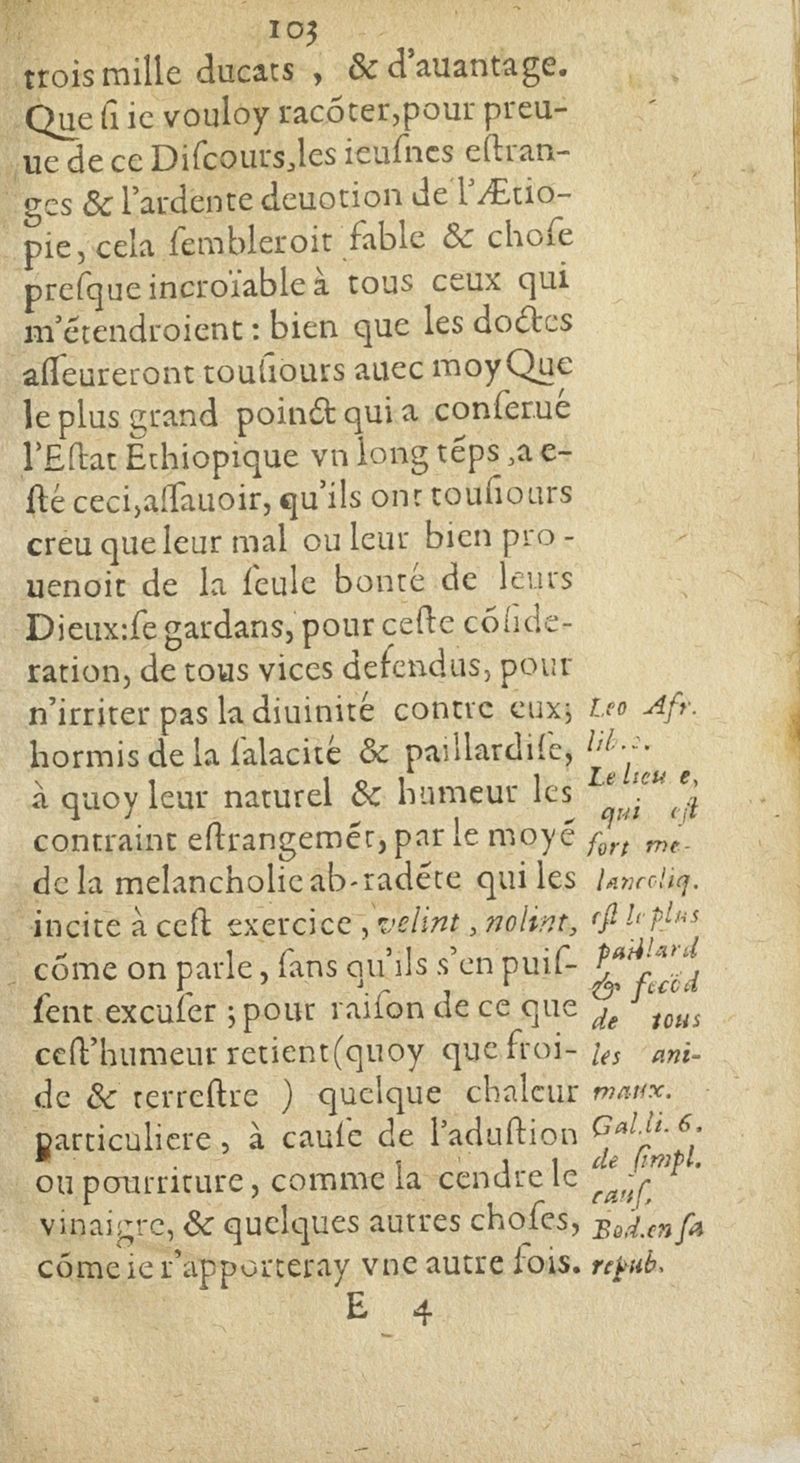 103
trois mille ducats , & d'auantage.
Que ſi ie vouloy racõter,pour preu-
ue de ce Diſcours,les ieuſnes eſtran-
ges & l'ardente deuotion de l'Ætio-
pie, cela ſembleroit fable & choſe
preſque incroïable à tous ceux qui
m'étendroient : bien que les doctes
aſſeureront touſiours auec moy Que
le plus grand poinct qui a conſerué
l'Eſtat Ethiopique vn long tẽps ,a e-
ſté ceci,aſſauoir, qu'ils ont touſiours
creu que leur mal ou leur bien pro-
uenoit de la ſeule bonté de leurs
Dieux:ſe gardans, pour ceſte cõſide-
ration, de tous vices defendus, pour
n'irriter pas la diuinité contre eux;
hormis de la ſalacité & paillardiſe,
à quoy leur naturel & humeur les
contraint eſtrangemẽt, par le moyẽ
de la melancholie ab-radẽte qui les
incite à ceſt exercice , velint , nolint,
cõme on parle, ſans qu'ils s'en puiſ-
ſent excuſer ; pour raiſon de ce que
ceſt'humeur retient(quoy que froi-
de & terreſtre ) quelque chaleur
particuliere , à cauſe de l'aduſtion
ou pourriture, comme la cendre le
vinaigre, & quelques autres choſes,
cõme ie r'apporteray vne autre fois.
Leo Afr.
lib.
Le lieu
qui eſt
fort me-
lancoliq.
eſt le plus
paillard
& fecõd
de tous
les ani-
maux.
Gal.li. 6.
de ſimpl.
cauſ.
Bod.en ſa
repub.
E 4